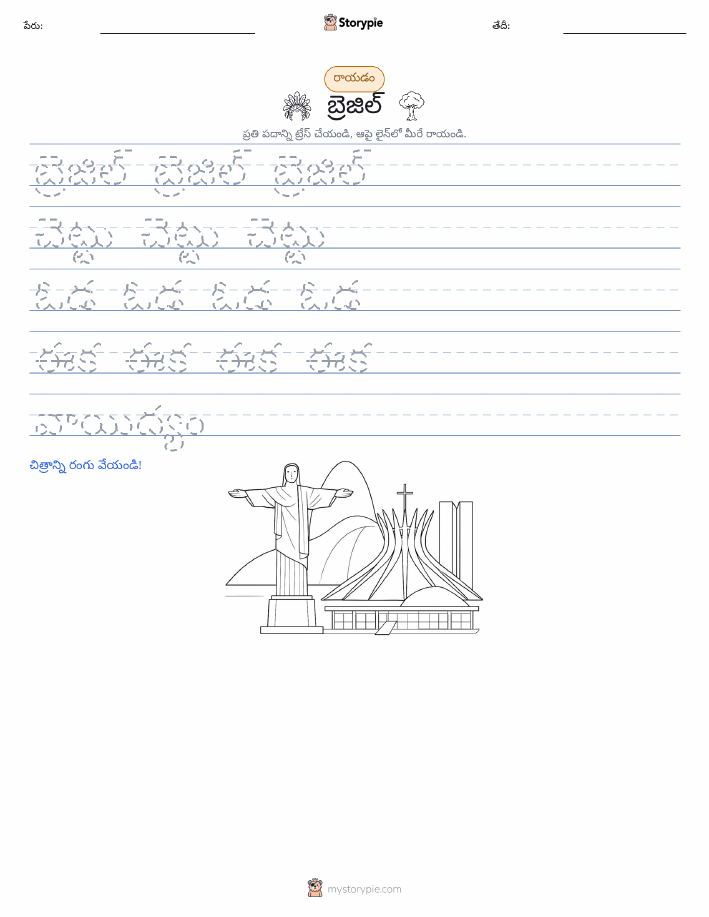 పేరు:
Storypie
తేదీ:
రాయడం
బ్రెజిల్
ప్రతి పదాన్ని ట్రేస్ చేయండి, ఆపై లైన్‌లో మీరే రాయండి.
బ్రెజిల్ బ్రెజిల్ బ్రెజిల్
చెట్టు చెట్టు చెట్టు
ఓడ ఓడ ఓడ ఓడ
ఈక ఈక ఈక ఈక
చిత్రాన్ని రంగు వేయండి!
mystorypie.com